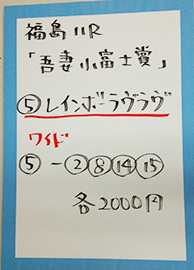 福島11R
「吾妻小富士賞」
⑤レインボーラヴラヴ
ワイド
⑤-②⑧⑭⑮
各2000円